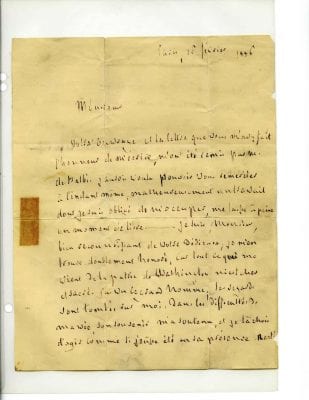 Paris, 25 février 1845
Monsieur
Votre ouvrage et la lettre que vous m'avez fait
l'honneur de m'écrire, m'ont été remis par M.
de Balbi. J'aurais voulu pouvoir vous remercier
à l'instant même, malheureusement un travail
dont je suis obligé de m'occuper, me laisse à peine
un moment de libre. Je suis Monsieur,
bien reconnaissant de votre Dédicace, je m'en
trouve doublement honoré, car tout ce qui me
vient de la patrie de Washington m'est cher
et sacré.
sont tombés sur moi. Dans les difficultés de
ma vie, son souvenir m'a soutenu, et je tâchois
d'agir comme si j'eusse été en sa présence.